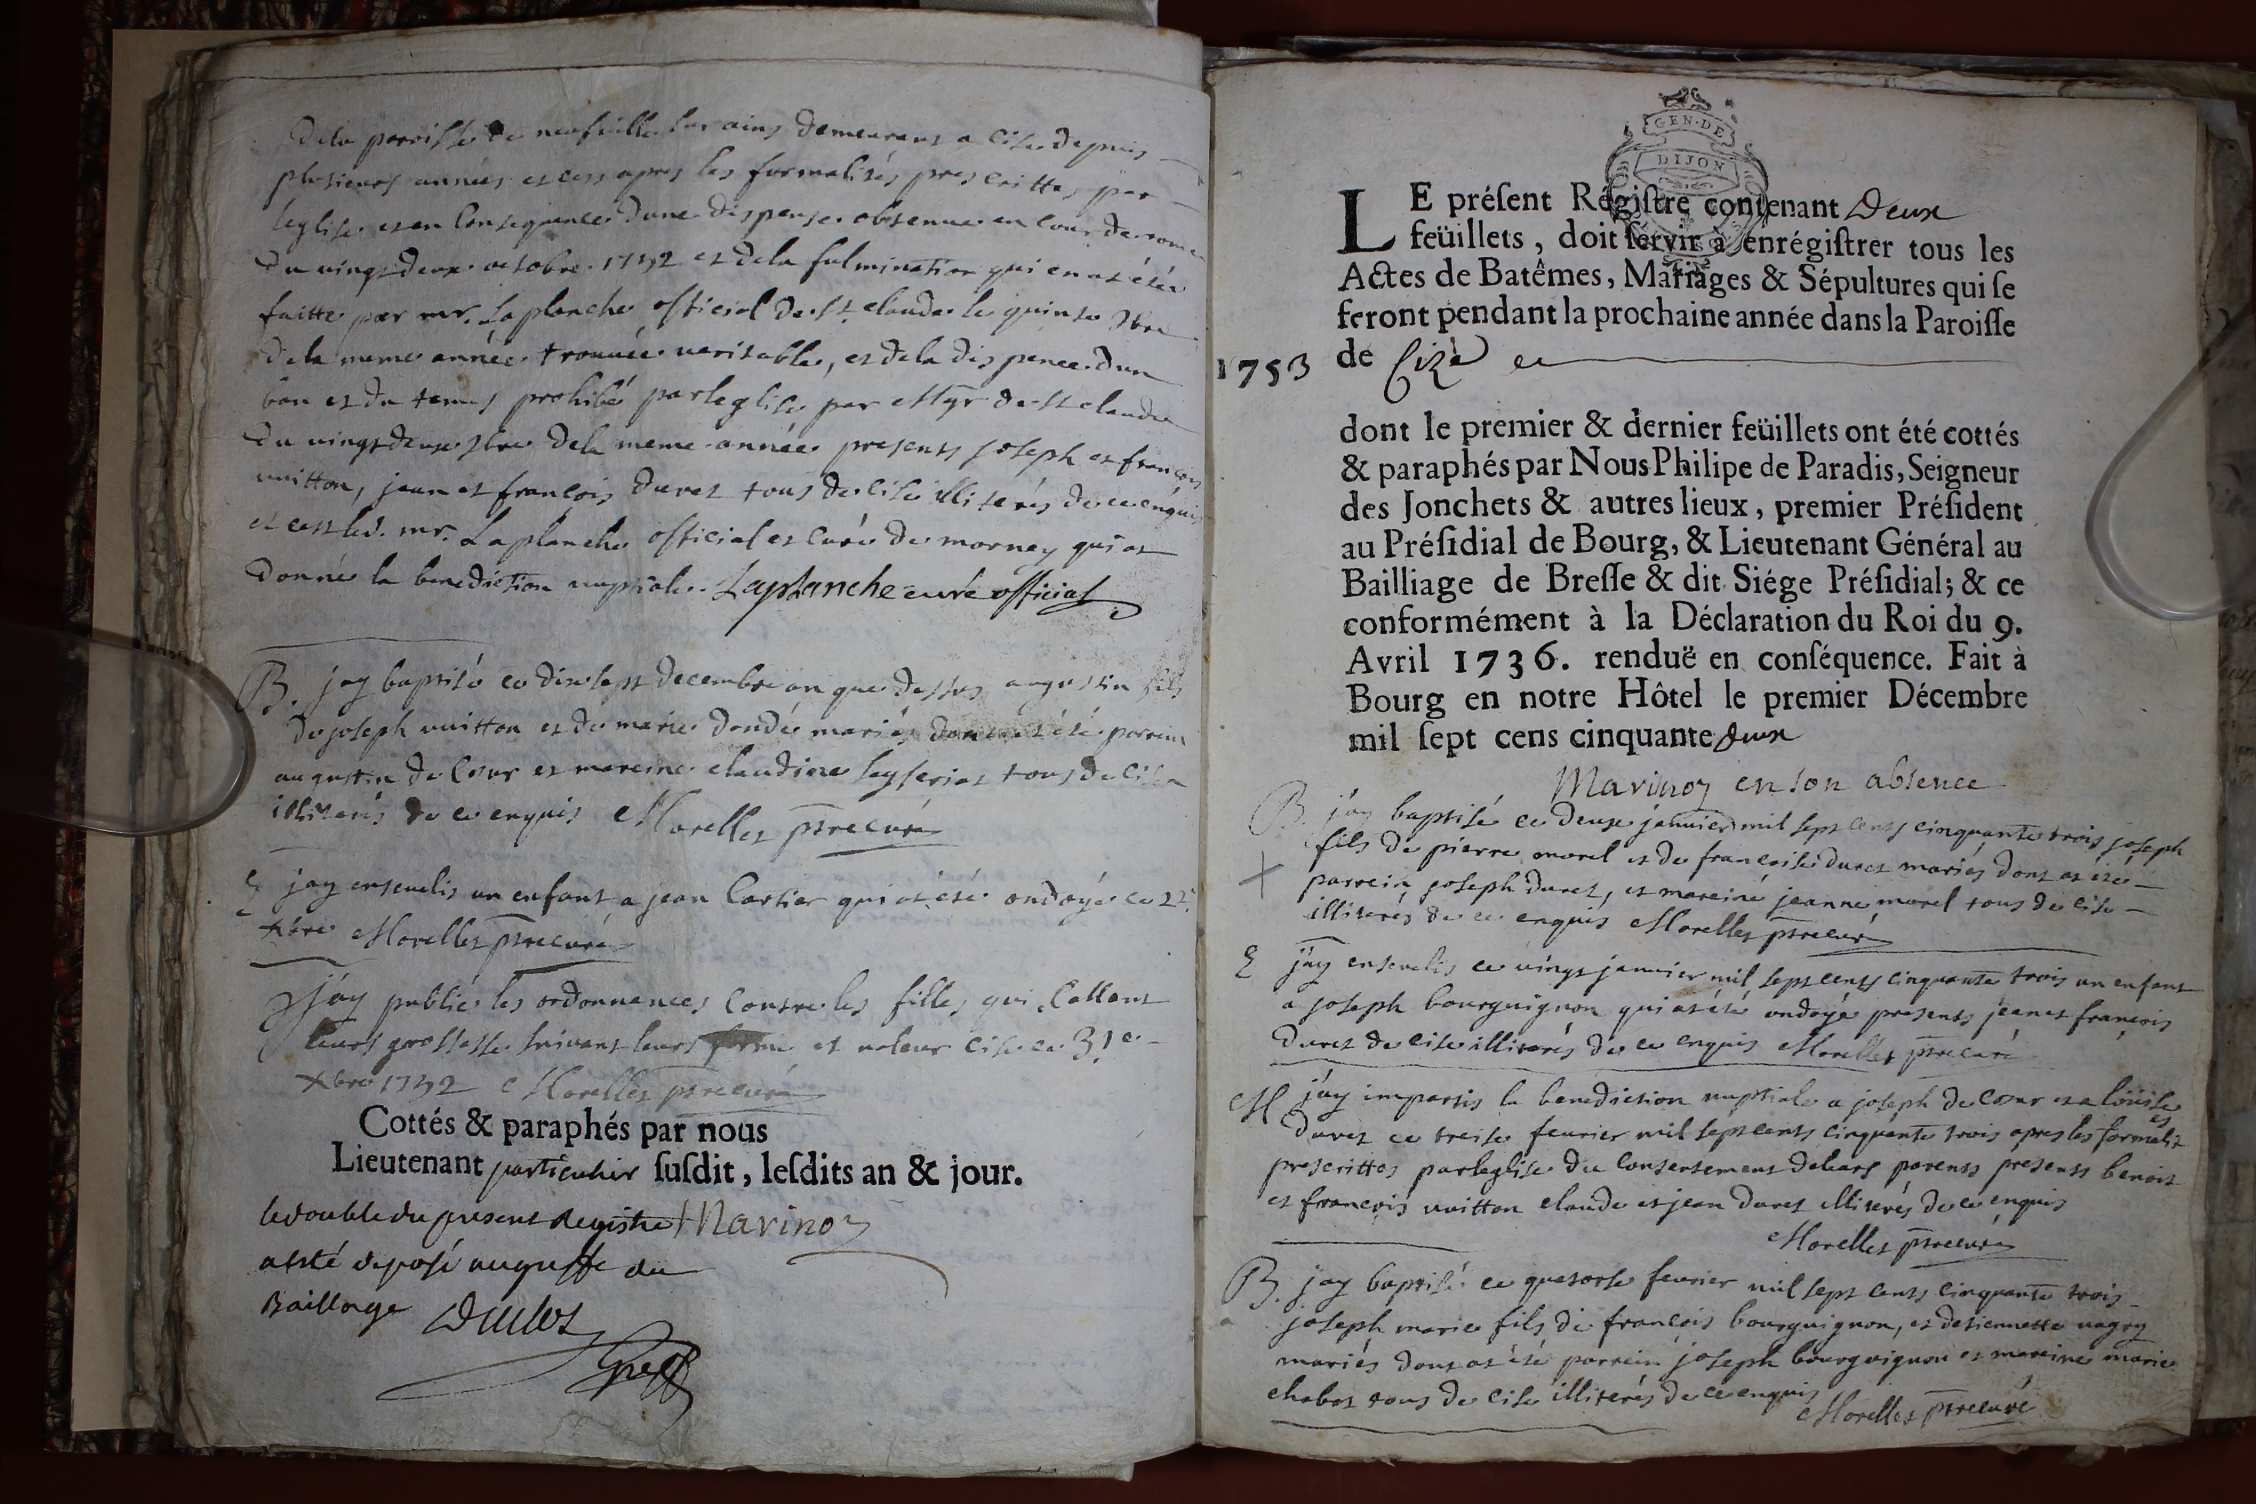 dela paroisse de neufuille sur ains demeurant a cise depuis
plusieurs années et cess apres les formalités prescrittes par
leglise et en consequence dune dispense obtenue en cour de rome
du vingt deux octobre 1752 et dela fulmination qui en at étée
faitte par mr. Laplanche official de st claude le quinse 9bre
de la meme année trouuée veritable, et dela dispence dun
ban et du tems prohibé par leglise par Mgr de st claude
du vingt deux 9bre dela meme année presents joseph et francois
vuitton, jean et francois duret tous de cise illiterés de ce enquis
et cest led. mr. Laplanche official et curé de mornay qui at
donné la benediction nuptiale. Laplanche curé official
B. jay baptisé ce dix sept decembre an que dessus augustin fils
de joseph vuitton et de marie dondé mariés dont at été parrein
augustin de Cour et mareine claudine leyseriat tous de cise
illiterés de ce enquis Morellet ptre curé
E jay enseuelis un enfant a jean Cartier qui at été ondoyé ce 22e
xbre Morellet ptre curé
jay publié les ordonnances Contre les filles qui Cellent
leurs grossesse suivant leurs forme et valeur cise ce 31e
xbre 1752 Morellet ptre curé
Cottés & paraphés par nous
Lieutenant particulier susdit, lesdits an & jour.
le double du present Registre Marinoz
a esté deposé au greffe du
Bailliage
Greff
GEN·DE
DIJON
LE présent Régistre contenant Deux
feüillets, doit servir à enrégistrer tous les
Actes de Batêmes, Mariages & Sépultures qui se
feront pendant la prochaine année dans la Paroisse
1753 de Cize
dont le premier & dernier feüillets ont été cottés
& paraphés par Nous Philipe de Paradis, Seigneur
des Jonchets & autres lieux, premier Président
au Présidial de Bourg, & Lieutenant Général au
Bailliage de Bresse & dit Siége Présidial; & ce
conformément à la Déclaration du Roi du 9.
Avril 1736. renduë en conséquence. Fait à
Bourg en notre Hôtel le premier Décembre
mil sept cens cinquante deux
Marinoz en son absence
B. jay baptisé ce deux januier mil sept cents cinquante trois joseph
fils de pierre morel et de francoise duret mariés dont at été
parrein joseph duret, et mareine jeanne morel tous de cise
illiterés de ce enquis Morellet ptre curé
E jay enseuelis ce vingt januier mil sept cents cinquante trois un enfant
a joseph bourguignon qui at été ondoyé presents jean et francois
duret de cise illiterés de ce enquis Morellet ptre curé
M jay impartis la benediction nuptiale a joseph de Cour et a louise
duret ce treise feurier mil sept cents cinquante trois apres les formalités
prescrittes par leglise du consentement de leurs parents presents benoit
et francois vuitton claude et jean duret illiterés de ce enquis
Morellet ptre curé
B. jay baptisé ce quatorse feurier mil sept cents cinquante trois
joseph marie fils de francois bourguignon, et detiennette nagry
mariés dont at été parrein joseph bourguignon et mareine marie
chabot tous de cise illiterés de ce enquis
Morellet ptre curé